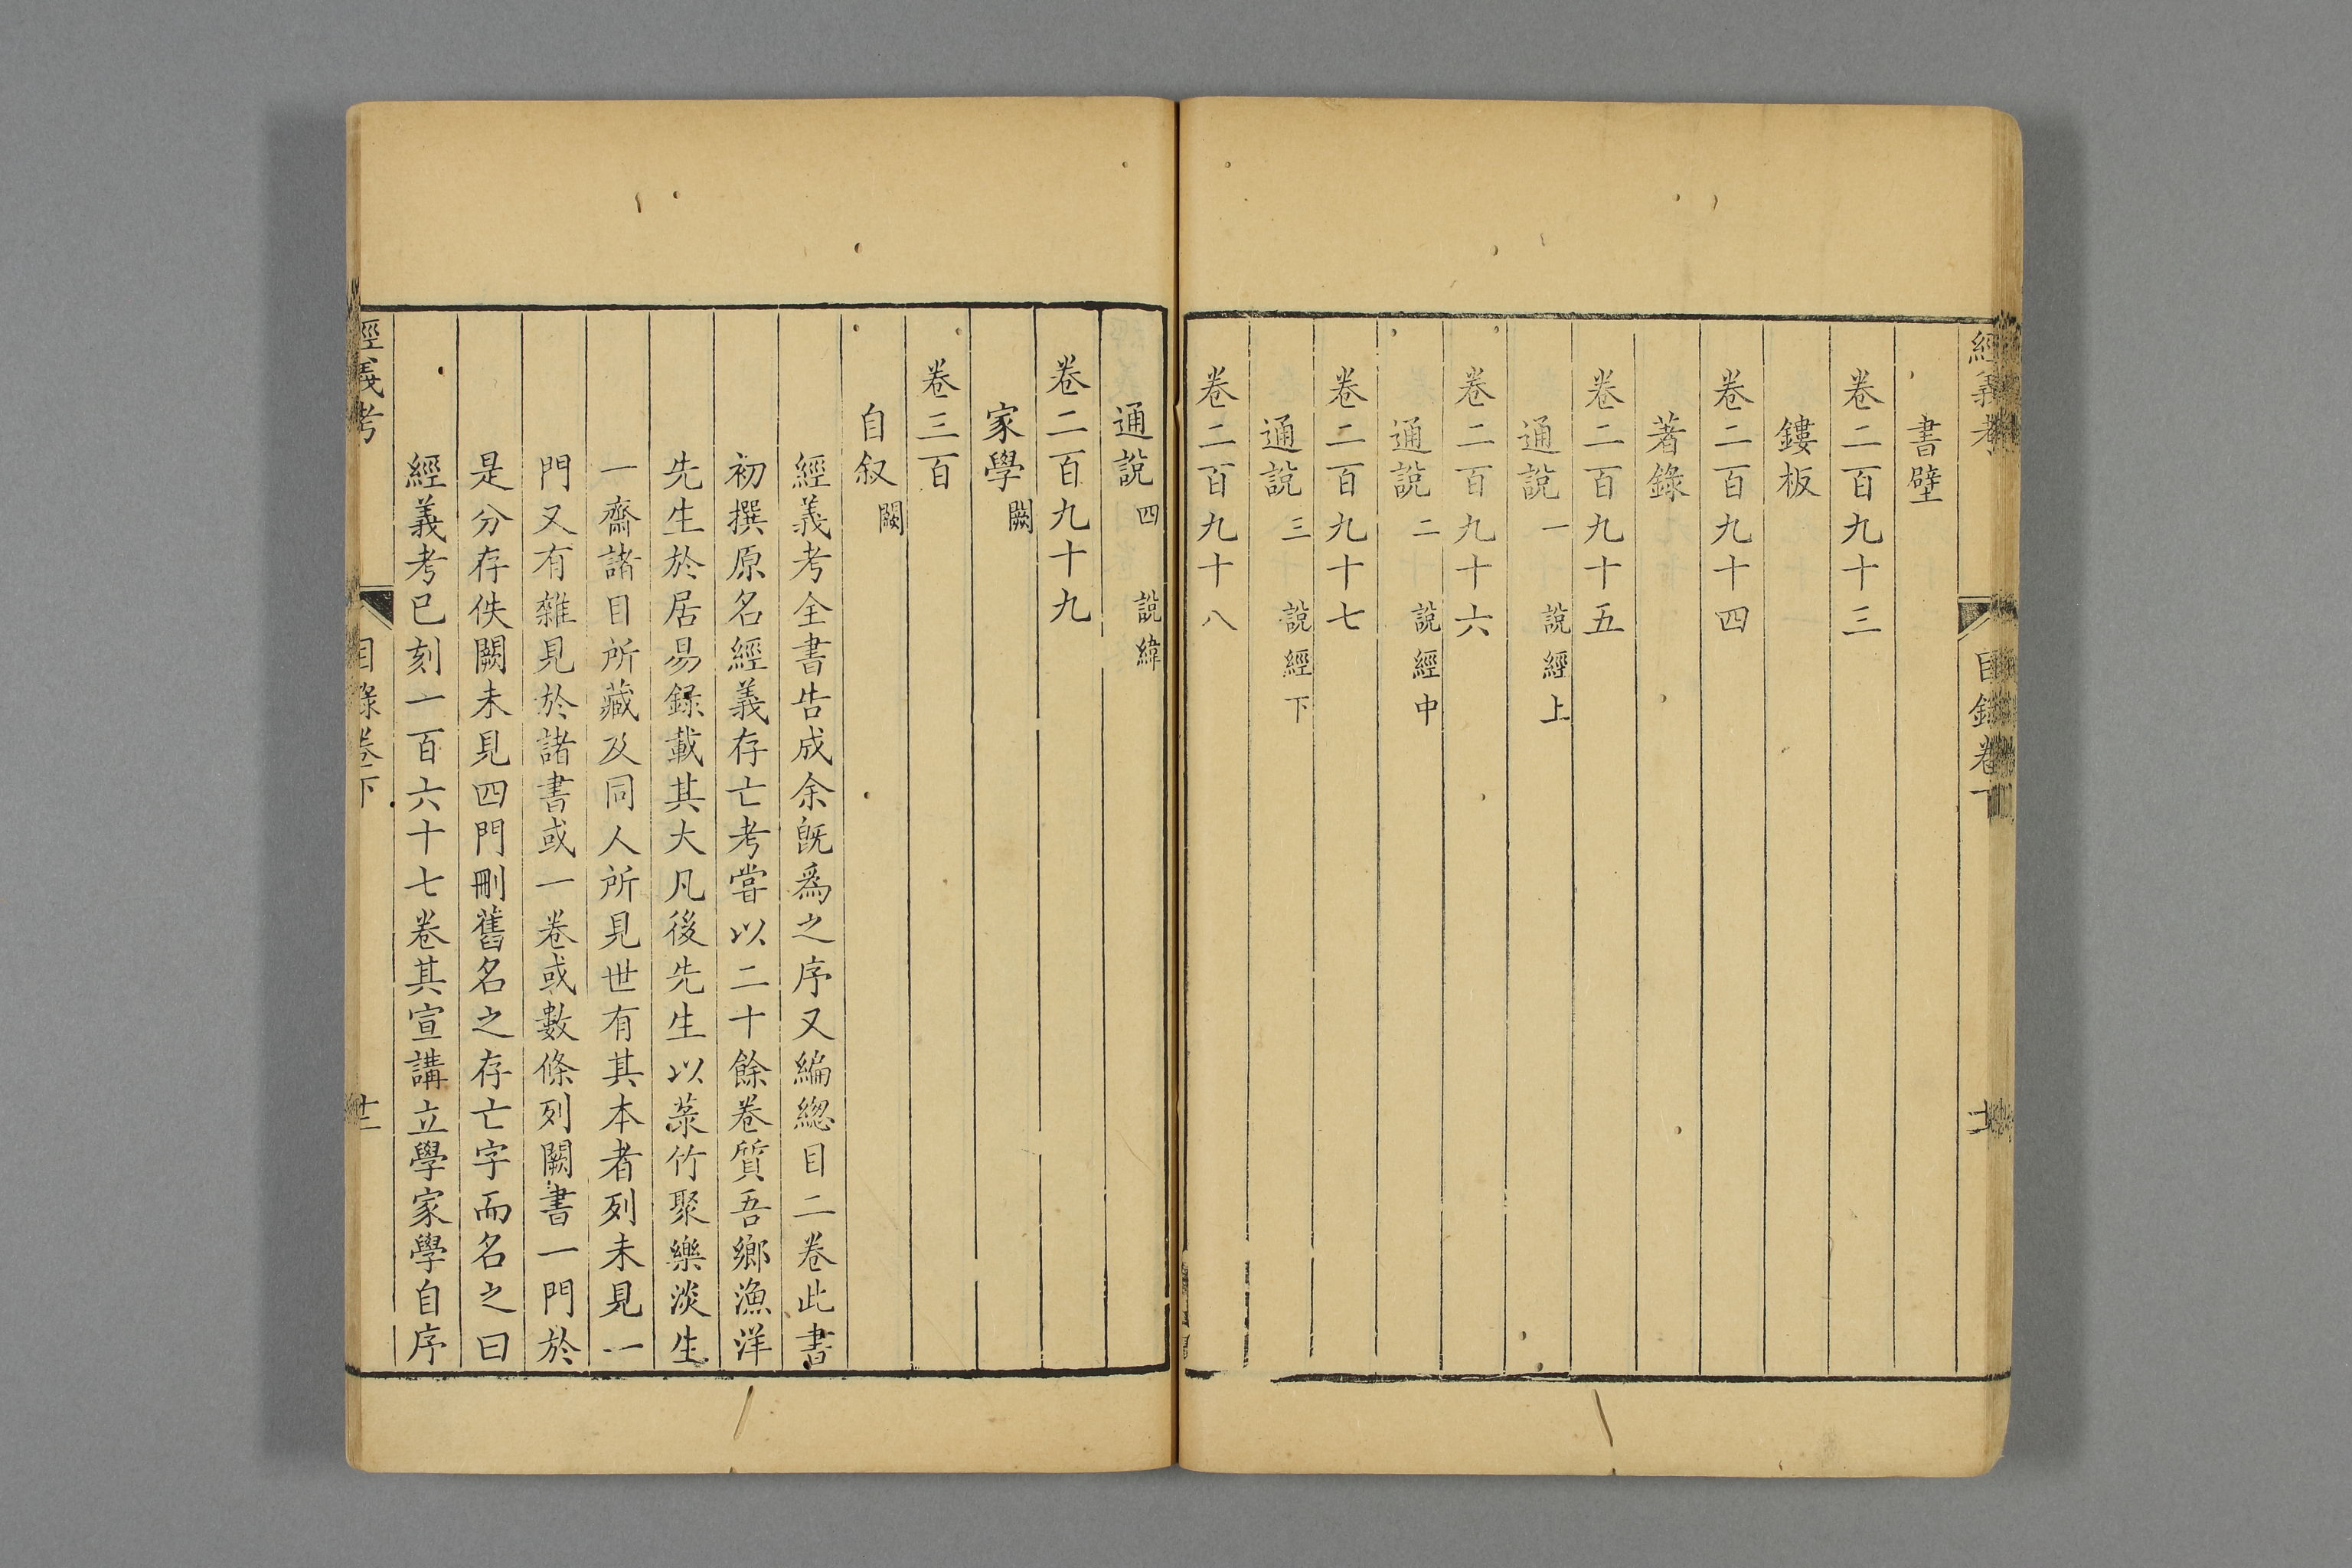 經義考
目錄卷下
書壁
卷二百九十三
鏤板
卷二百九十四
著錄
卷二百九十五
通說一 說經上
卷二百九十六
通說二 說經中
卷二百九十七
通說三 說經下
卷二百九十八
通說四 說緯
卷二百九十九
家學闕
卷三百
自叙闕
經義考全書告成余旣爲之序又編緫目二卷此書
初撰原名經義存亡考嘗以二十餘卷質吾鄉漁洋
先生於居易録載其大凡後先生以菉竹聚樂淡生
一齋諸目所藏及同人所見世有其本者列未見一
門又有雜見於諸書或一卷或數條列闕書一門於
是分存佚闕未見四門刪舊名之存亡字而名之曰
經義考已刻一百六十七卷其宣講立學家學自序
經義考
目錄卷下
十二